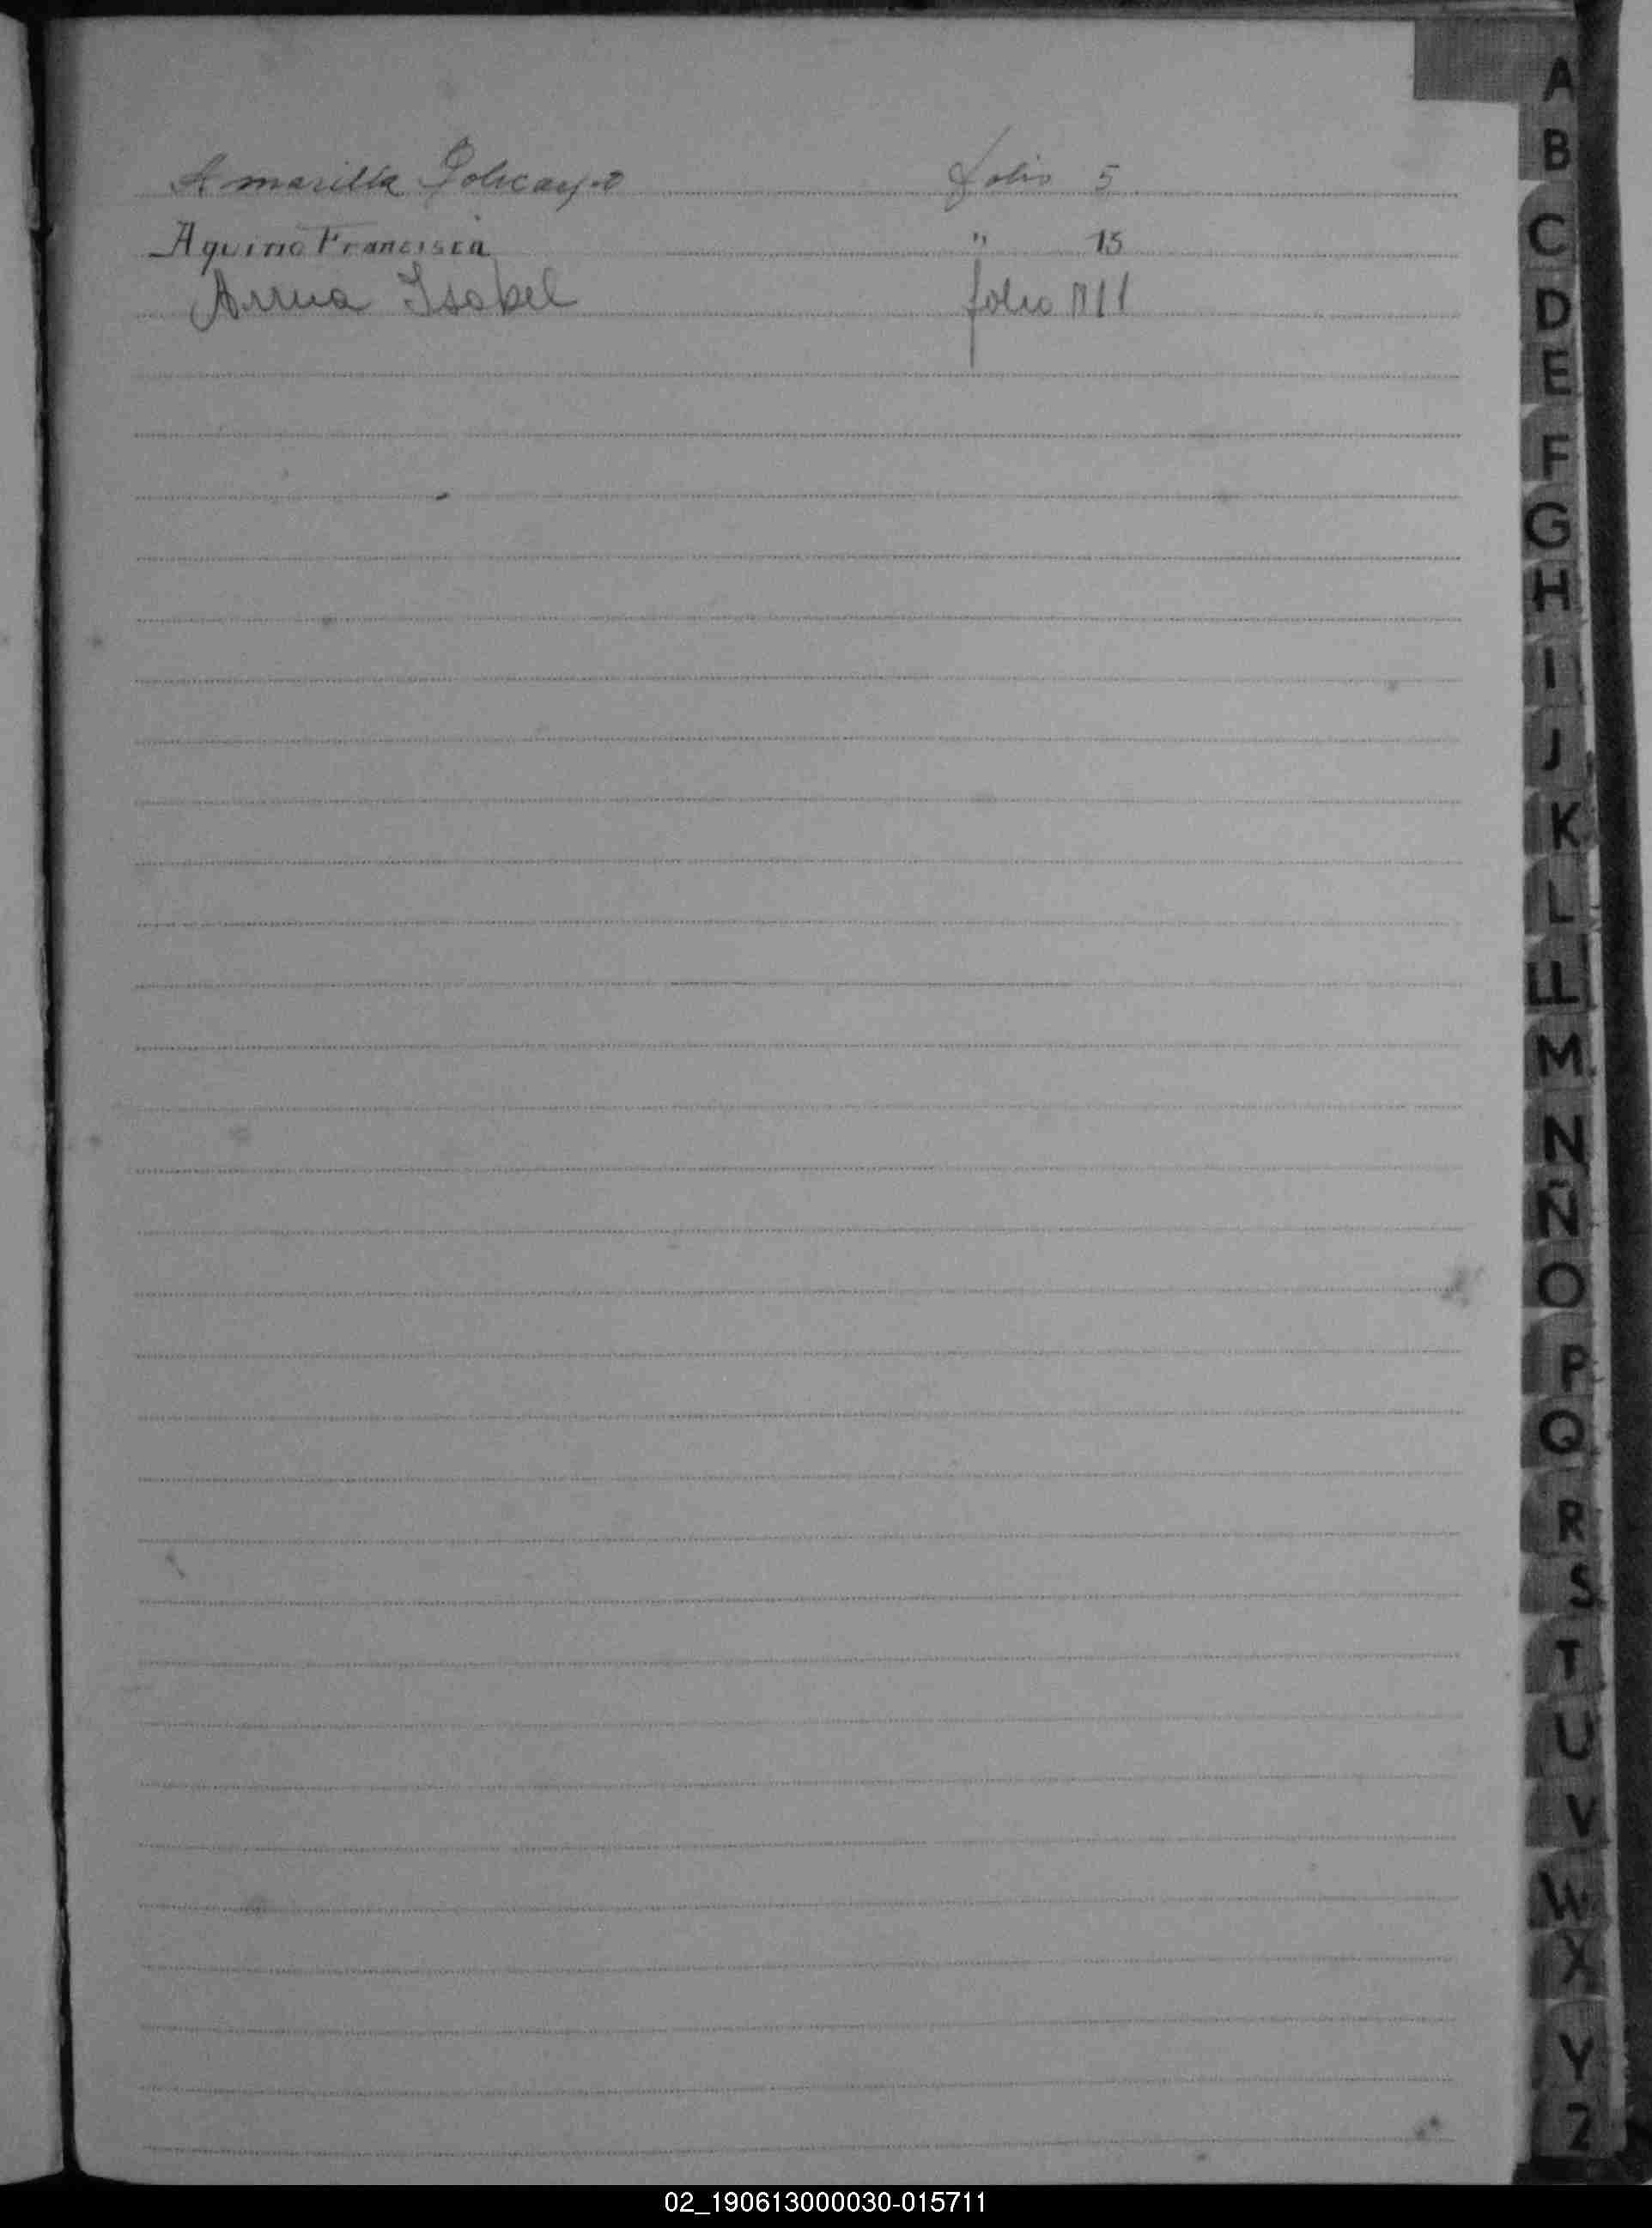 Amarilla Policarpo folio 5
Aquino Francisca " 15
Arrua Isabel folio
A
B
C
D
E
F
G
H
I
J
K
L
LL
M
N
Ñ
O
P
Q
R
S
T
U
V
W
X
Y
Z
02_190613000030-015711